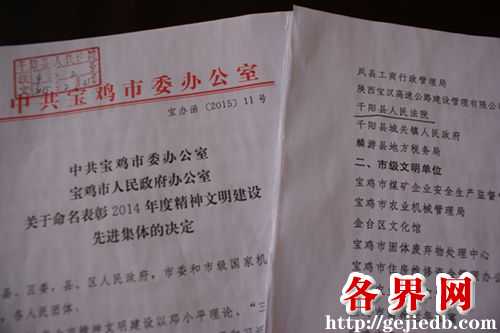 千阳县人民法院
中共宝鸡市委办公室
宝办函〔2015〕11号
中共宝鸡市委办公室
宝鸡市人民政府办公室
关于命名表彰2014年度精神文明建设
先进集体的决定
县、区委,县、区人民政府,市委和市级国家机
各人民团体:
神文明建设以邓小平理论、“三
凤县工商行政管理局
陕西宝汉高速公路建设管理有限公司
千阳县人民法院
千阳县城关镇人民政府
麟游县地方税务局
二、市级文明单位
宝鸡市煤矿企业安全生产监督
宝鸡市农业机械管理局
金台区文化馆
宝鸡市固体废弃物处理中心
宝鸡市住房维修资金管理办公
各界网
http://gejiedb.com/